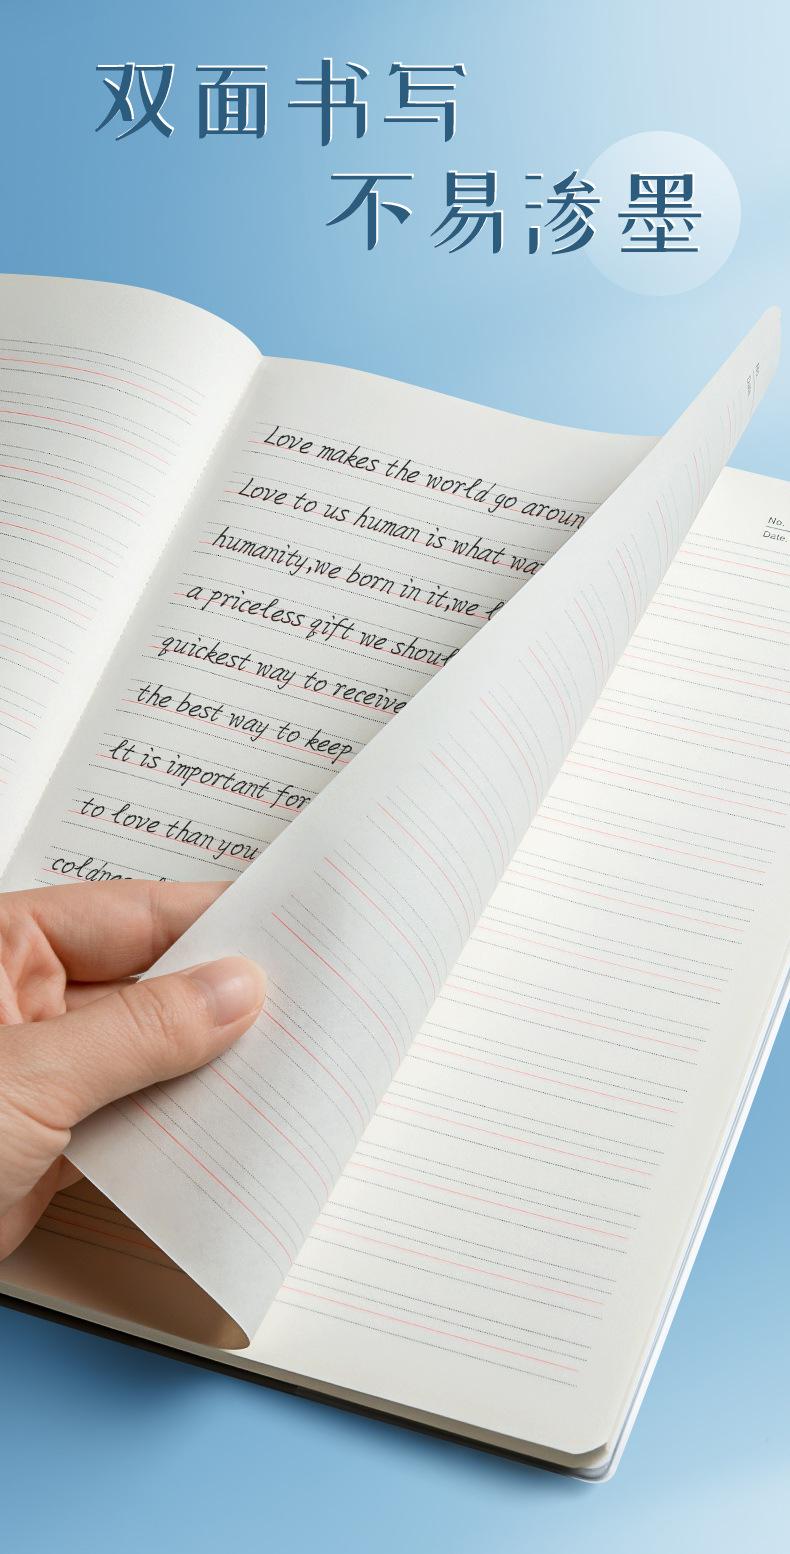 双面书写
不易渗墨
No.
Date.
Love makes the world go aroun
Love to us human is what wa
humanity,we born in it,we
a priceless gift we shoul
quickest way to receive
the best way to keep
It is important for
to love than you